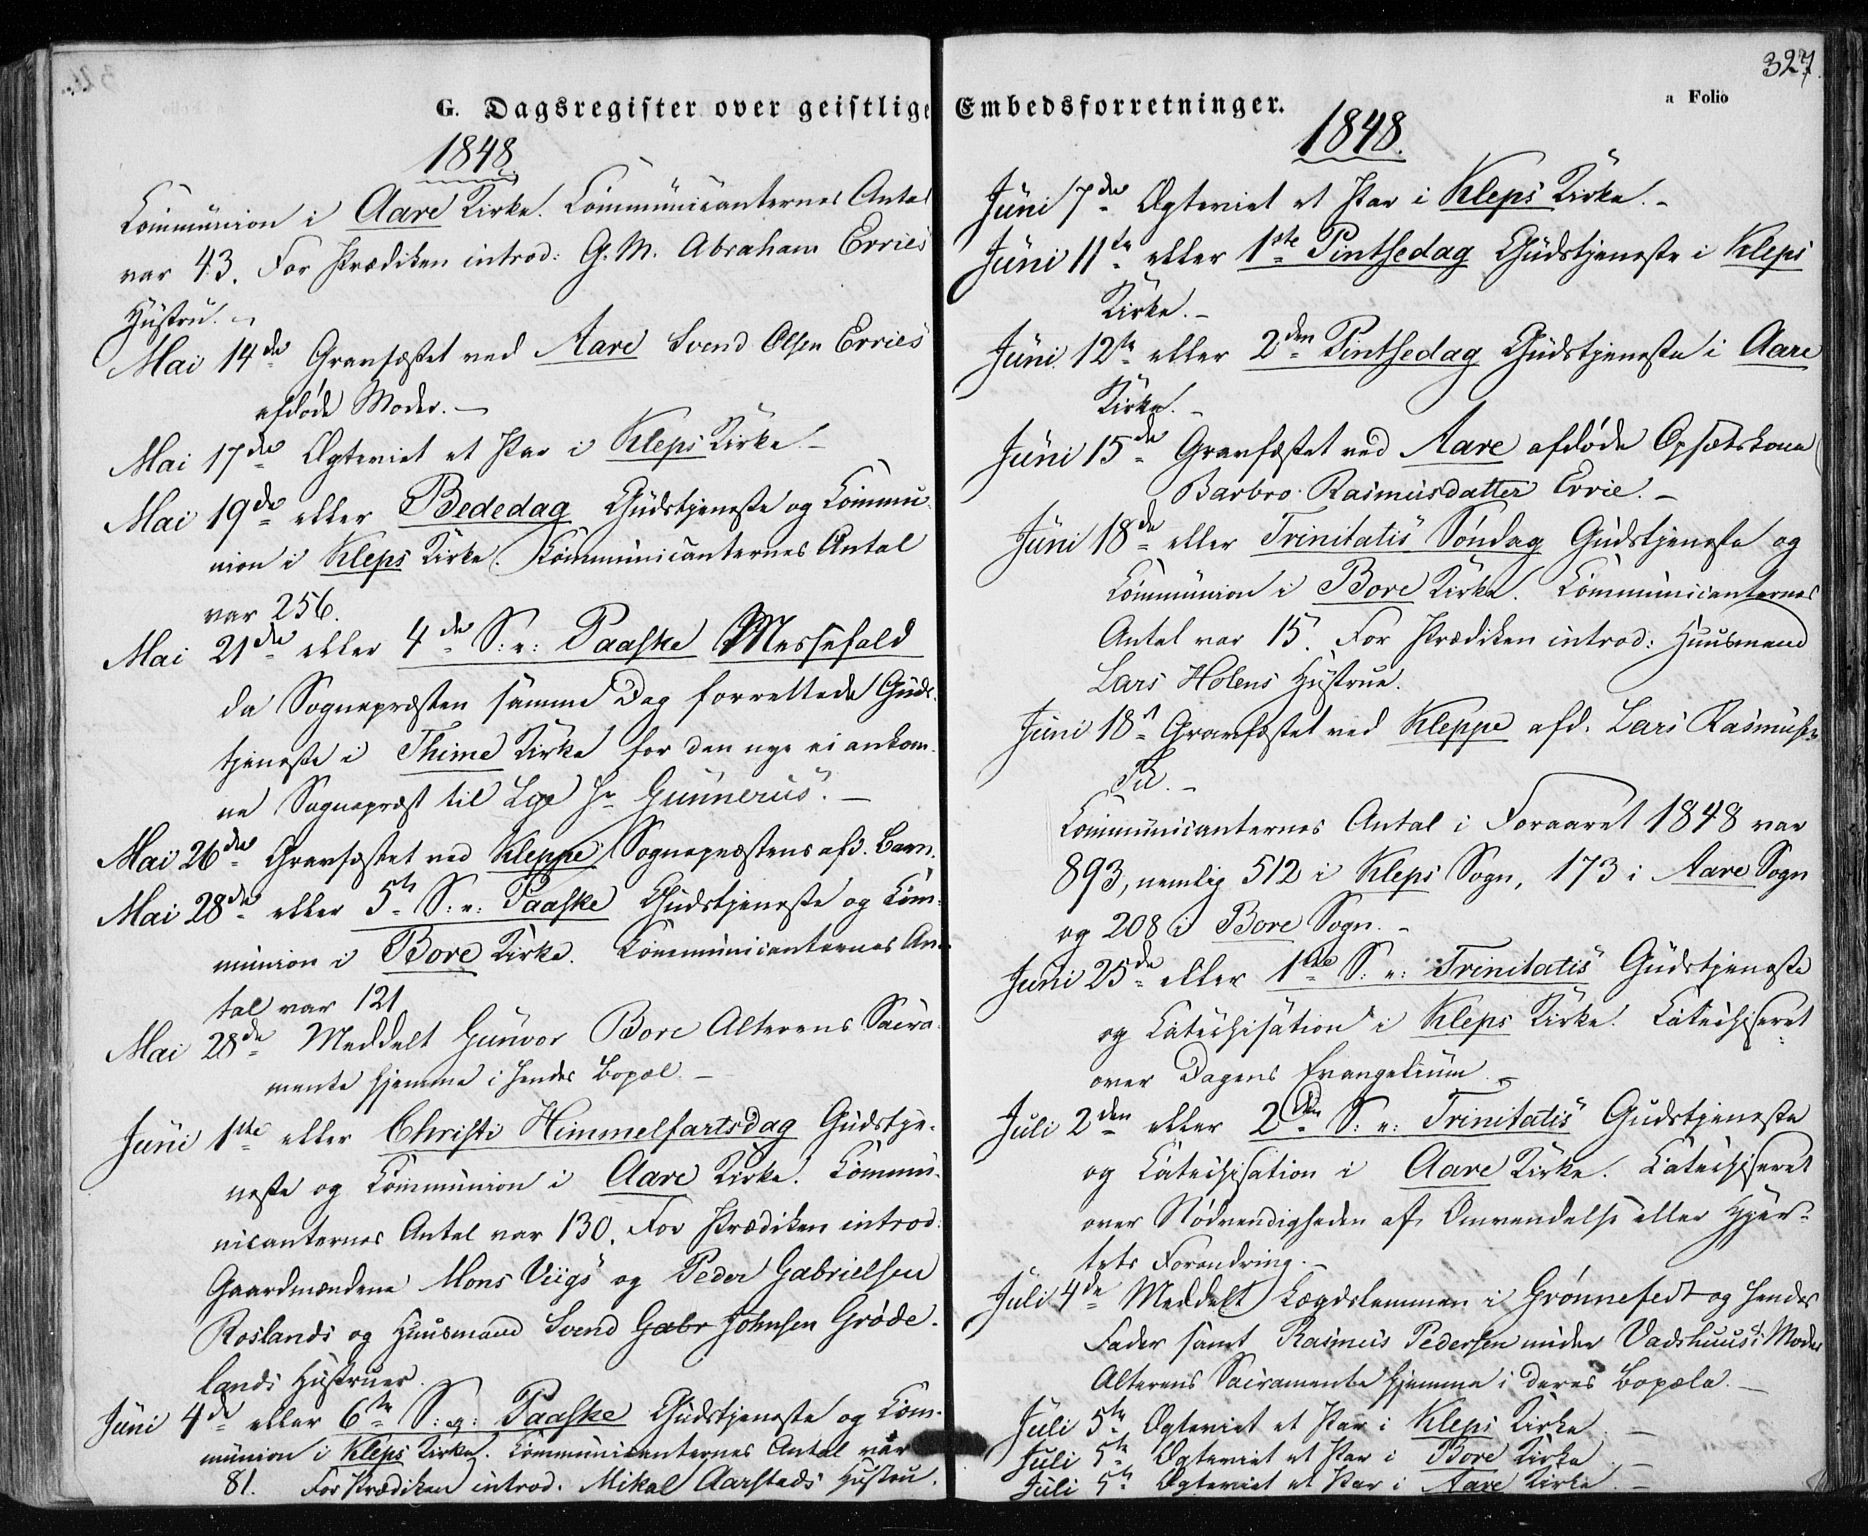 G. Dagsregister over geistlige Embedsforretninger.
1848
Communion i Aare Kirke. Communicanternes Antal
var 43. For Prædiken introd: G. M. Abraham Erries
Hustru. –
Mai 14de Gravfæstet ved Aare Svend Olsen Erries
afdøde Moder. –
Mai 17de Ægteviet et Par i Kleps Kirke. –
Mai 19de eller Bededag Gudstjeneste og Commu-
nion i Kleps Kirke. Communicanternes Antal
var 256.
Mai 21de eller 4de S: e: Paaske Messefald
da Sognepræsten samme Dag forrettede Guds-
tjeneste i Thime Kirke for den nye ei ankom-
ne Sognepræst til Lye Hr Gunnerus. –
Mai 26de Gravfæstet ved Kleppe Sognepræstens afd. Barn.
Mai 28de eller 5te S: e: Paaske Gudstjeneste og Com-
munion i Bore Kirke. Communicanternes An-
tal var 121
Mai 28de Meddelt Gunvor Bore Alterens Sacra-
mente hjemme i hendes Bopæl. –
Juni 1ste eller Christi Himmelfartsdag Gudstje-
neste og Communion i Aare Kirke. Commu-
nicanternes Antal var 130. For Prædiken introd:
Gaardmændene Mons Viigs og Peder Gabrielsen
Roslands og Huusmand Svend Gabr Johnsen Grøde-
lands Hustruer.
Juni 4de eller 6te S: e: Paaske Gudstjeneste og Com-
munion i Kleps Kirke. Communicanternes Antal var
81. For Prædiken introd. Mikal Aarstads Hustru.
327.
a Folio
1848.
Juni 7de Ægteviet et Par i Kleps Kirke. –
Juni 11te eller 1ste Pintsedag Gudstjeneste i Kleps
Kirke. –
Juni 12te eller 2den Pintsedag Gudstjeneste i Aare
Kirke. –
Juni 15de Gravfæstet ved Aare afdøde Opsætskone
Barbro Rasmusdatter Errie. –
Juni 18de eller Trinitatis Søndag Gudstjeneste og
Communion i Bore Kirke. Communicanternes
Antal var 15. For Prædiken introd: Huusmand
Lars Holens Hustrue.
Juni 18de Gravfæstet ved Kleppe afd. Lars Rasmusen
Communicanternes Antal i Foraaret 1848 var
893, nemlig 512 i Kleps Sogn, 173 i Aare Sogn
og 208 i Bore Sogn. –
Juni 25de eller 1ste S: e: Trinitatis Gudstjeneste
og Catechisation i Kleps Kirke. Catechiseret
over Dagens Evangelium. –
Juli 2den eller 2den S: e: Trinitatis Gudstjeneste
og Catechisation i Aare Kirke. Catechiseret
over Nødvendigheden af Omvendelse eller Hjer-
tets Forandring. –
Juli 4de Meddelt Lægdslemmen i Grønnefedt og hendes
Fader samt Rasmus Pedersen Vadshuus's Moder
Alterens Sacramente hjemme i deres Bopæle. –
Juli 5te Ægteviet et Par i Kleps Kirke. –
Juli 5te Ægteviet et Par i Bore Kirke. –
Juli 5te Ægteviet et Par i Aare Kirke. –